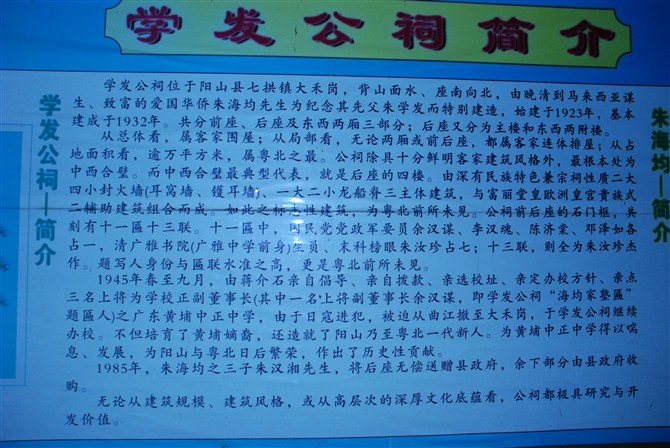 学发公祠简介
学发公祠—简介
学发公祠位于阳山县七拱镇大禾岗，背山面水、座南向北，由晚清到马来西亚谋
生、致富的爱国华侨朱海均先生为纪念其先父朱学发而特别建造，始建于1923年，基本
建成于1932年。共分前座、后座及东西两厢三部分；后座又分为主楼和东西两附楼。
从总体看，属客家围屋；从局部看，无论两厢或前后座，都属客家连体排屋；从占
地面积看，逾万平方米，属粤北之最。公祠除具十分鲜明客家建筑风格外，最根本处为
中西合壁。而中西合壁最典型代表，就是后座的四楼。由深有民族特色兼宗祠性质二大
四小封火墙(耳窝墙、镬耳墙)、一大二小龙船脊三主体建筑，与富丽堂皇欧洲皇宫贵族式
二辅助建筑组合而成。如此之标志性建筑，为粤北前所未见。公祠前后座的石门框，共
刻有十一匾十三联。十一匾中，国民党党政军要员余汉谋、李汉魂、陈济棠、邓泽如各
占一，清广雅书院(广雅中学前身)生员、末科榜眼朱汝珍占七；十三联，则全为朱汝珍杰
作。题写人身份与匾联水准之高，更是粤北前所未见。
1945年春至九月，由蒋介石亲自倡导、亲自拨款、亲选校址、亲定办校方针、亲点
三名上将为学校正副董事长(其中一名上将副董事长余汉谋，即学发公祠“海均家塾匾”
题匾人)之广东黄埔中正中学，由于日寇进犯，被迫从曲江撤至大禾岗，于学发公祠继续
办校。不但培育了黄埔嫡裔，还造就了阳山乃至粤北一代新人。为黄埔中正中学得以喘
息、发展，为阳山与粤北日后繁荣，作出了历史性贡献。
1985年，朱海均之三子朱汉湘先生，将后座无偿送赠县政府，余下部分由县政府收
购。
无论从建筑规模、建筑风格，或从高层次的深厚文化底蕴看，公祠都极具研究与开
发价值。
朱海均—简介